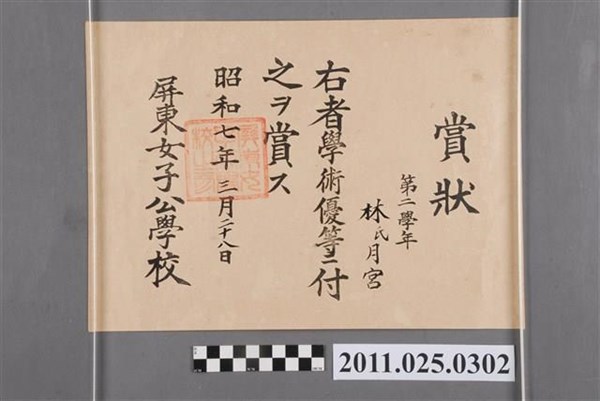 賞狀
第二學年
林氏月宮
右者學術優等ニ付
之ヲ賞ス
昭和七年三月二十八日
屏東女子公學校
2011.025.0302